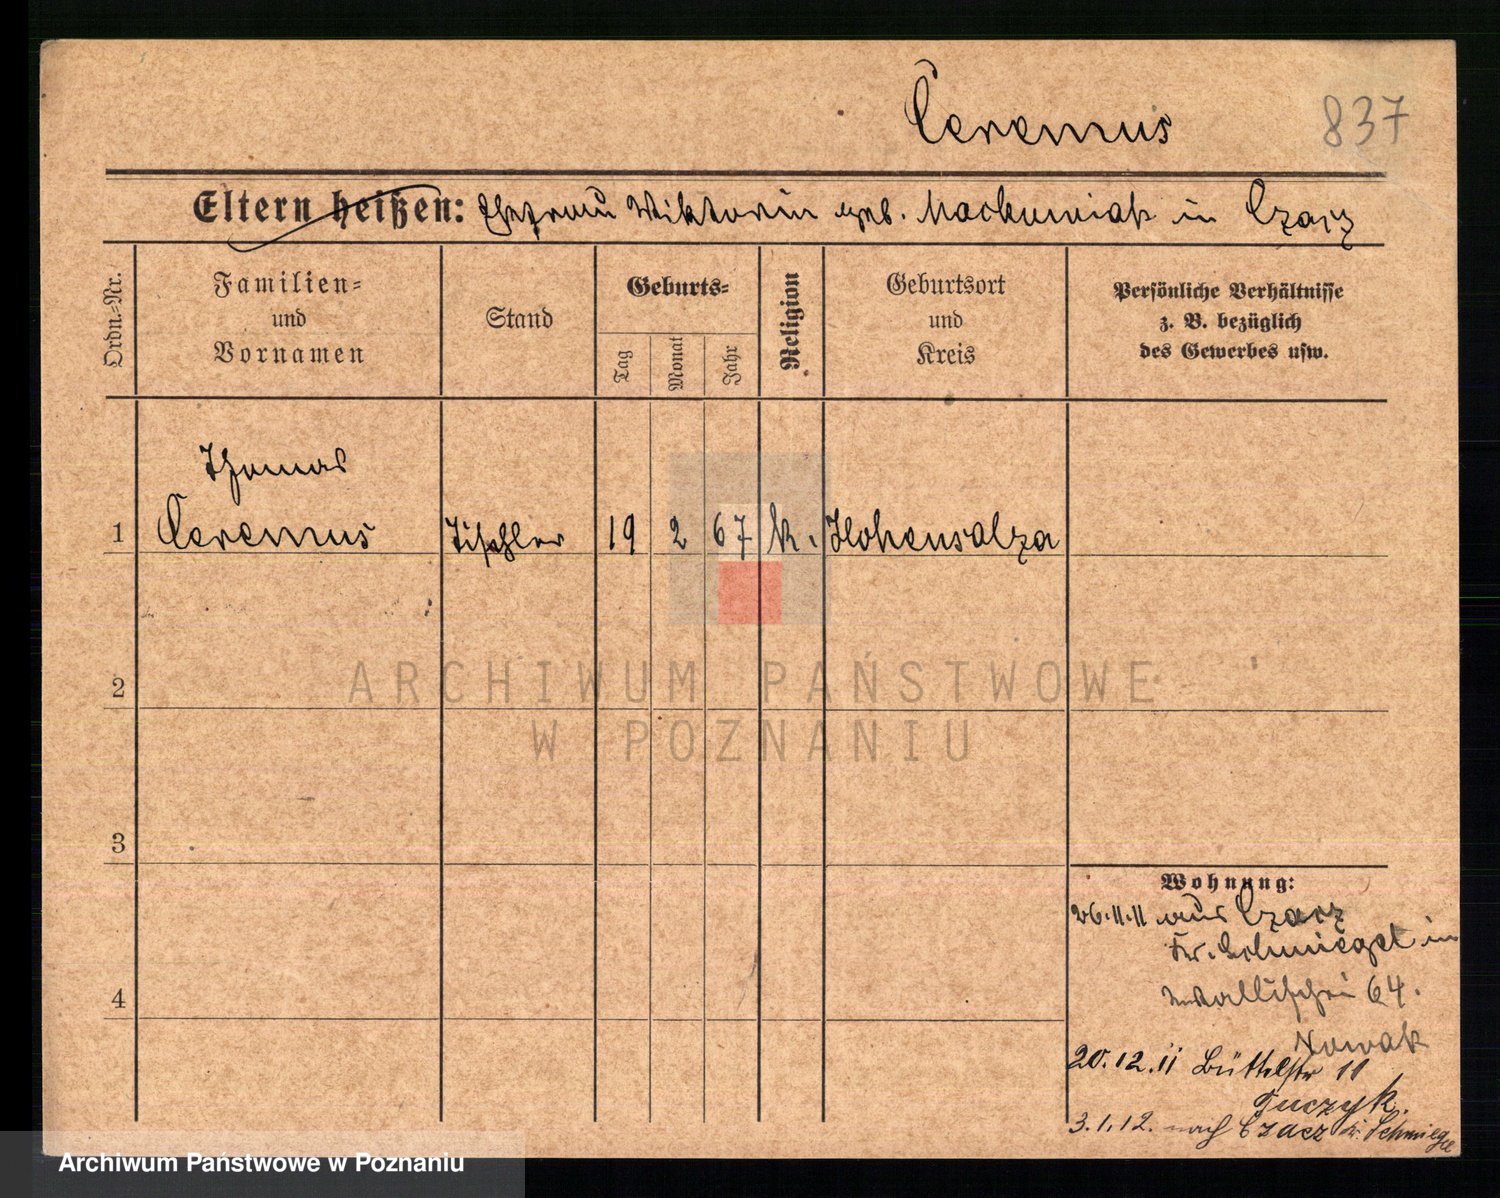 Ceremus
837
Eltern heißen: Ehefrau Wiktoria geb. Mackowiak in Czacz
Ordn.-Nr.
Familien-
und
Vornamen
Stand
Geburts-
Tag
Monat
Jahr
Religion
Geburtsort
und
Kreis
Persönliche Verhältnisse
z. B. bezüglich
des Gewerbes usw.
Thomas
1 Ceremus Tischler 19 2 67 k. Hohensalza
2
3
4
ARCHIWUM PAŃSTWOWE
W POZNANIU
Wohnung:
26.11.11 aus Czacz
Kr. Schmiegel in
Wallischei 64.
Nowak
20.12.11 Büttelstr 11
3.1.12. nach Czacz Kr. Schmiegel
Archiwum Państwowe w Poznaniu